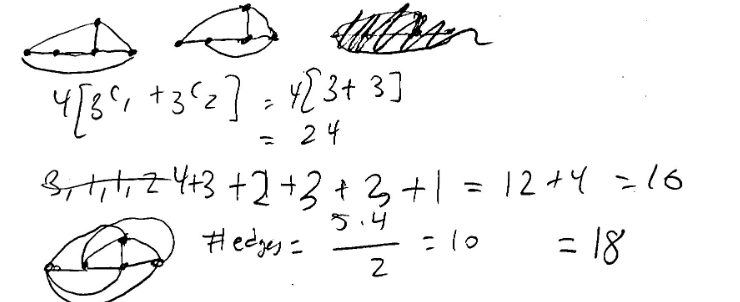 4[3C1 + 3C2] = 4[3+3]
= 24
4+3+2+3+3+1 = 12+4 = 16
#edges = 5.4/2 = 10 = 18